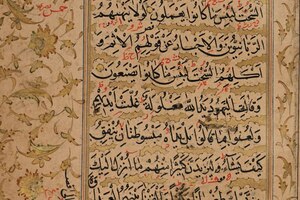 السُّحْتَ لَبِئْسَ مَا كَانُوا يَعْمَلُونَ لَوْلَا يَنْهٰيهُمُ
الرَّبَّانِيُّونَ وَالْاَحْبَارُ عَنْ قَوْلِهِمُ الْاِثْمَ وَ
اَكْلِهِمُ السُّحْتَ لَبِئْسَ مَا كَانُوا يَصْنَعُونَ
وَقَالَتِ الْيَهُودُ يَدُ اللّٰهِ مَغْلُولَةٌ غُلَّتْ اَيْدِيهِمْ
وَلُعِنُوا بِمَا قَالُوا بَلْ يَدَاهُ مَبْسُوطَتَانِ يُنْفِقُ
كَيْفَ يَشَاءُ وَلَيَزِيدَنَّ كَثِيرًا مِنْهُمْ مَا اُنْزِلَ اِلَيْكَ